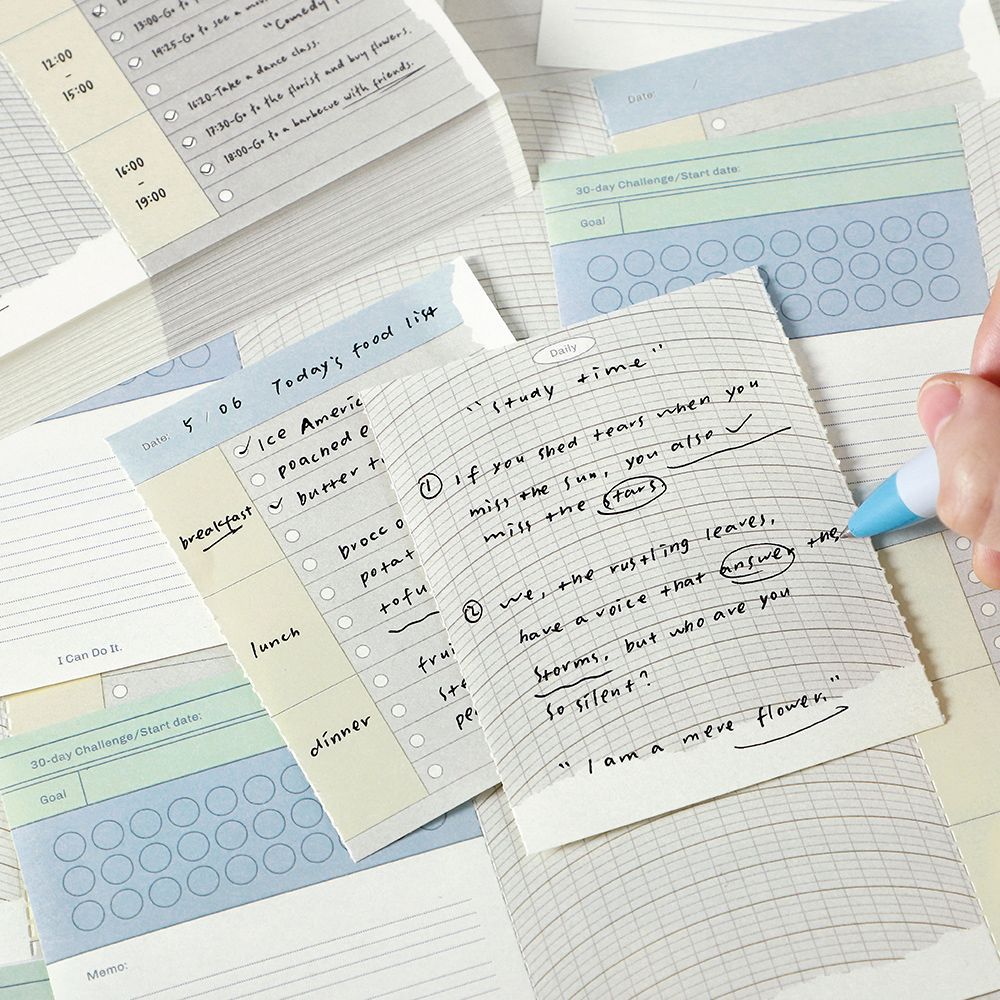 13:00-Go to
19:25-Go to see a
"Comedy
16:20-Take a dance class.
17:30-Go to the florist and buy flowers.
18:00-Go to a barbecue with friends.
12:00
-
15:00
16:00
-
19:00
Date: /
30-day Challenge/Start date:
Goal
Date: 5/06 Today's food list
breakfast
Ice Americ
poached e
butter t
lunch
brocc o
potat
tofu
dinner
frui
ste
pe
Daily
"study time"
① If you shed tears when you
miss the sun, you also ✓
miss the stars.
② We, the rustling leaves,
have a voice that answer the
storms, but who are you
so silent?
"I am a mere flower."
I Can Do It.
30-day Challenge/Start date:
Goal
Memo: